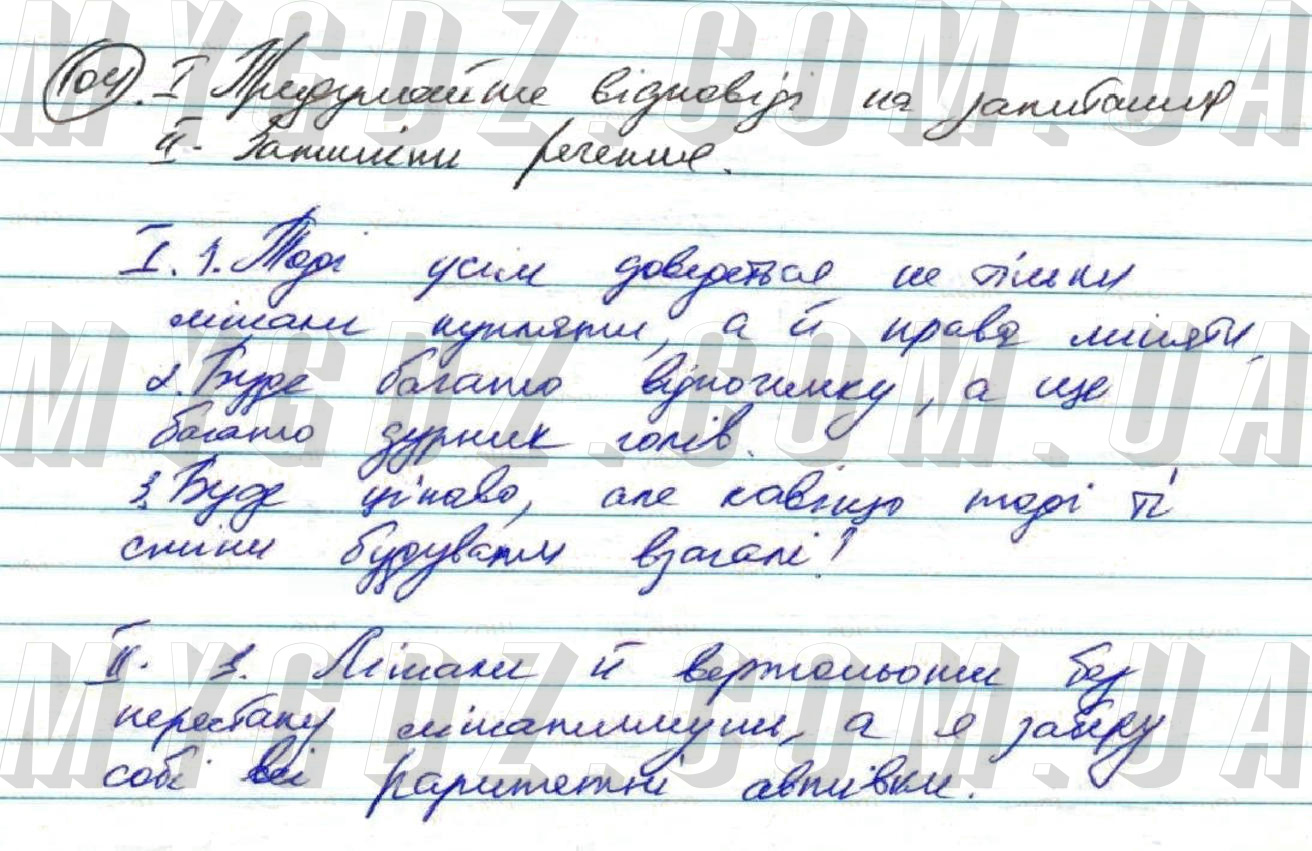 104. I Придумайте відповіді на запитання
II. Запишіть речення.
I. 1. Тоді усім доведеться не тільки
літаки купляти, а й права міняти.
2. Буде багато відпочинку, а ще
багато дурних голів.
3. Буде цікаво, але навіщо тоді ті
стіни будувати взагалі!
II. 1. Літаки й вертольоти без
перестану літатимуть, а я заберу
собі всі раритетні автівки.
MYGDZ.COM.UA